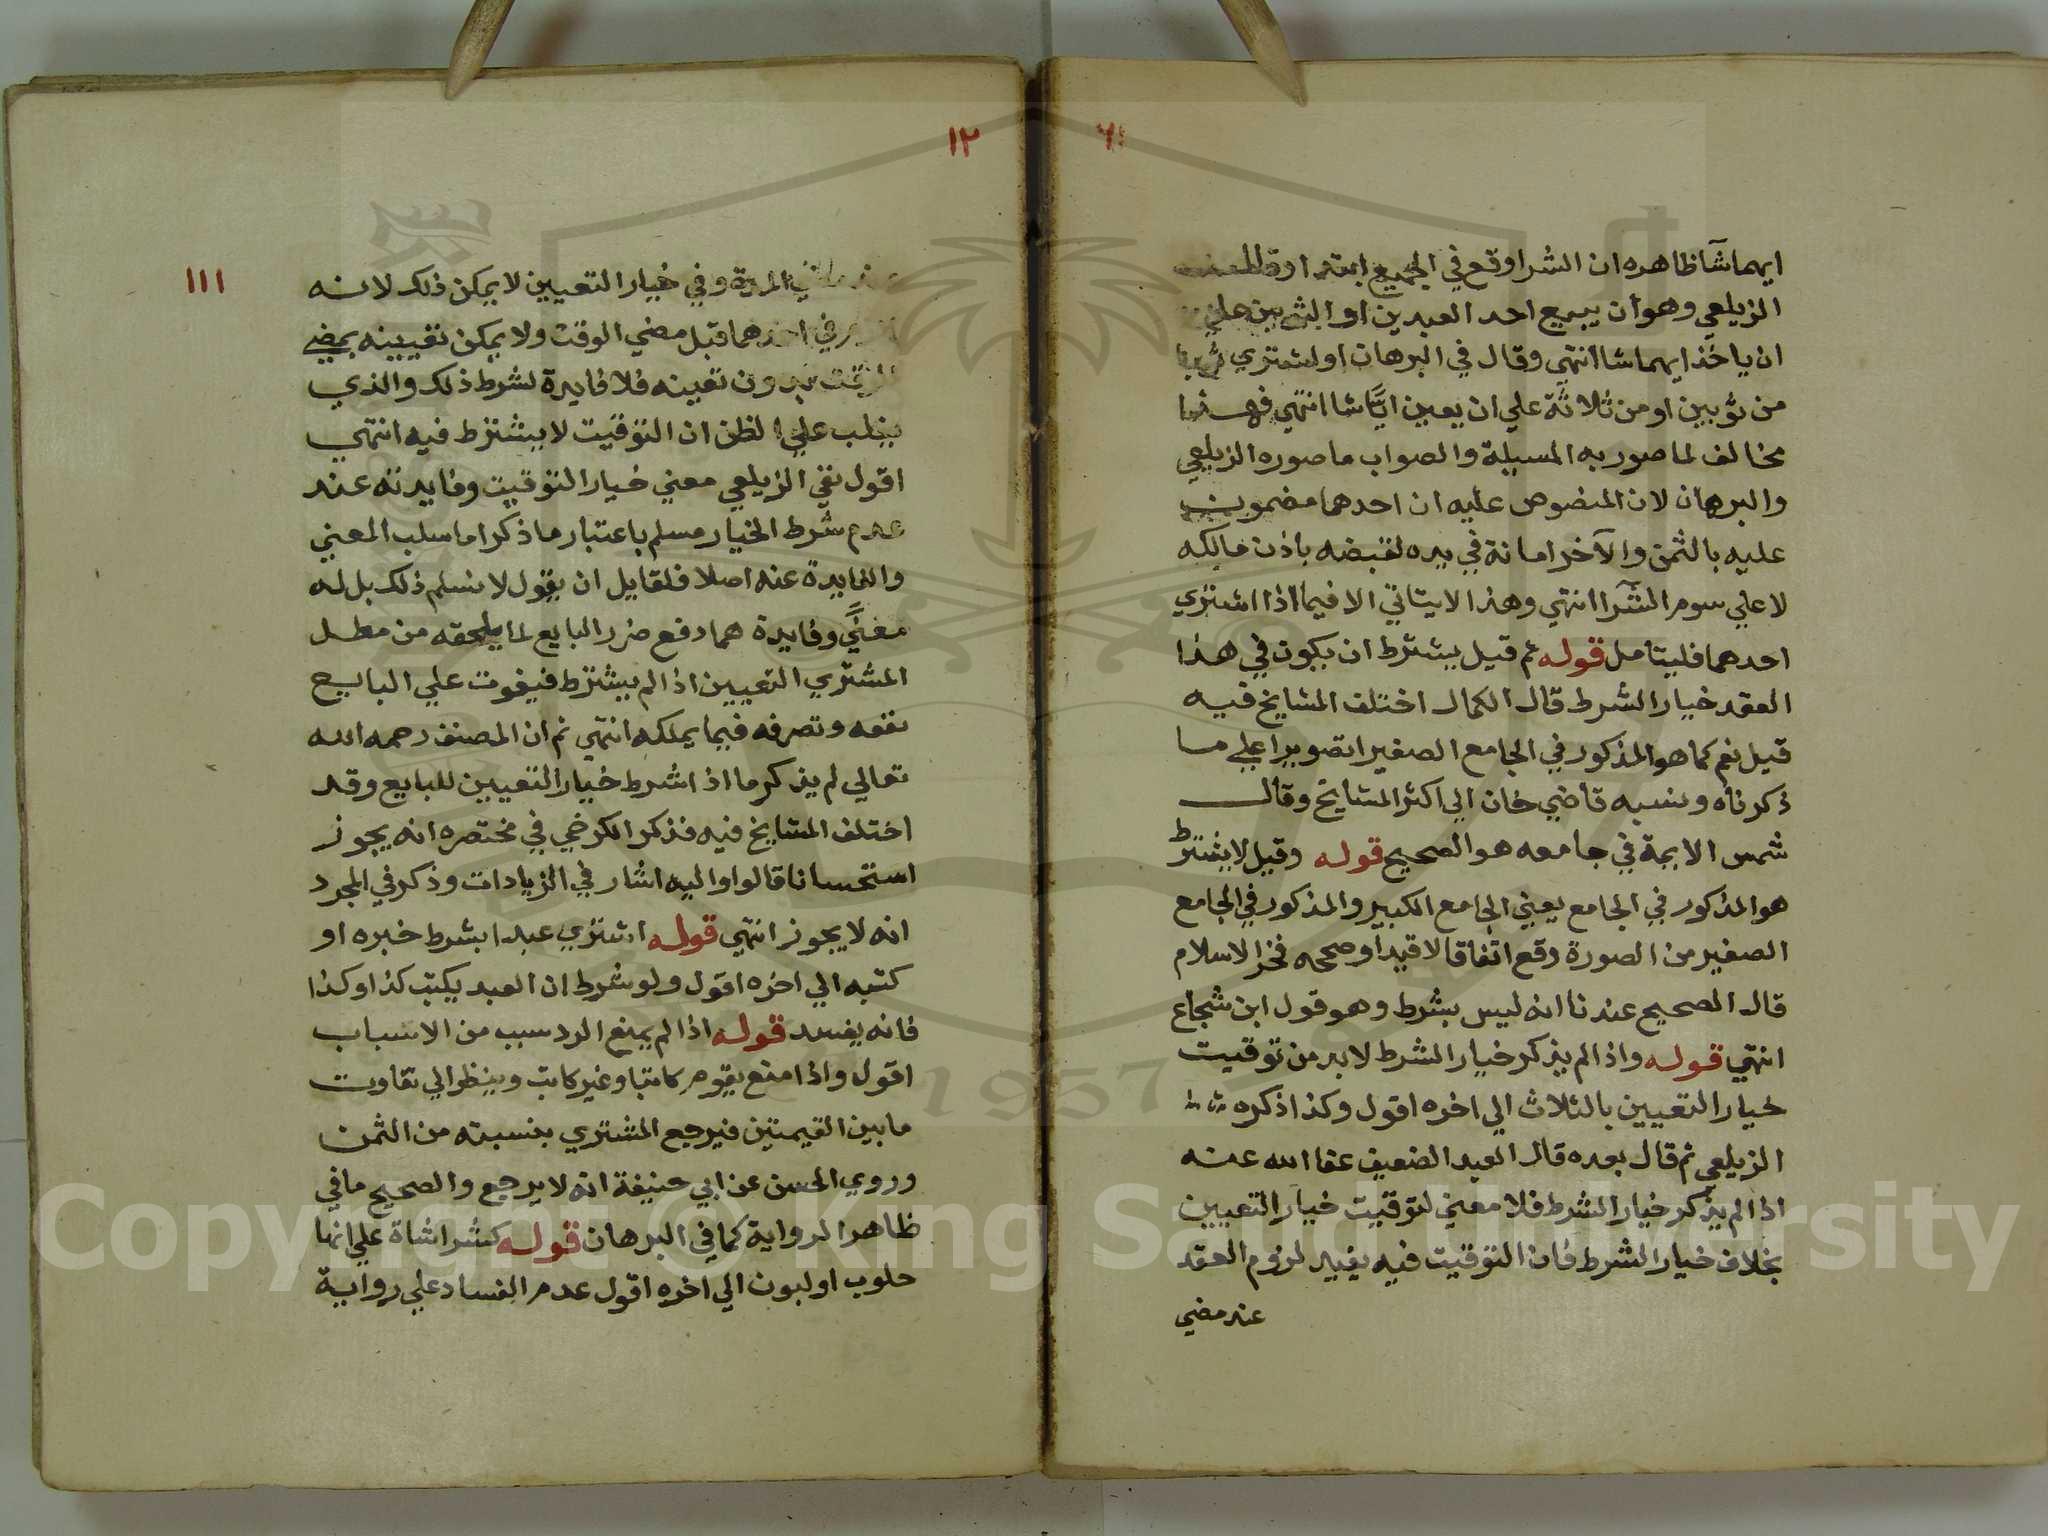 ١١
ايهما شآ ظاهره ان الشرا وقع في الجميع ابتدا وقد
الزيلعي وهو ان يبيع احد العبدين او الثوبين علي
ان ياخذ ايهما شا انتهي وقال في البرهان او اشتري ثوبا
من ثوبين او من ثلاثة علي ان يعين ايّا شا انتهي فهذا
مخالف لما صور به المسيلة والصواب ما صوره الزيلعي
والبرهان لان المنصوص عليه ان احدهما مضمون
عليه بالثمن والآخر امانة في يده لقبضه باذن مالكه
لا علي سوم الشرا انتهي وهذا لايتاتي الا فيما اذا اشتري
احدهما فليتامل قوله ثم قيل يشترط ان يكون في هذا
العقد خيار الشرط قال الكمال اختلف المشايخ فيه
قيل نعم كما هو المذكور في الجامع الصغير تصويرا علي ما
ذكرناه ونسبه قاضي خان الي اكثر المشايخ وقال
شمس الايمة في جامعه هو الصحيح قوله وقيل لا يشترط
هو المذكور في الجامع يعني الجامع الكبير والمذكور في الجامع
الصغير من الصورة وقع اتفاقا لا قيدا وصححه فخر الاسلام
قال الصحيح عندنا انه ليس بشرط وهو قول ابن شجاع
انتهي قوله واذا لم يذكر خيار الشرط لابد من توقيت
خيار التعيين بالثلاث الي اخره اقول وكذا ذكره
الزيلعي ثم قال بعده قال العبد الضعيف عفا الله عنه
اذا لم يذكر خيار الشرط فلا معني لتوقيت خيار التعيين
بخلاف خيار الشرط فان التوقيت فيه يفيد لزوم العقد
عند مضي
١٢
١١١
المدة وفي خيار التعيين لا يمكن ذلك لانه
في احدهما قبل مضي الوقت ولا يمكن تعيينه بمضي
الوقت بدون تعيينه فلا فايدة لشرط ذلك والذي
يغلب علي الظن ان التوقيت لا يشترط فيه انتهي
اقول نفي الزيلعي معني خيار التوقيت وفايدته عند
عدم شرط الخيار مسلم باعتبار ما ذكر اما سلب المعني
والفايدة عنه اصلا فلقايل ان يقول لا نسلم ذلك بل له
معنيً وفايدة هما دفع ضرر البايع لما يلحقه من مطل
المشتري التعيين اذا لم يشترط فيفوت علي البايع
نفعه وتصرفه فيما يملكه انتهي ثم ان المصنف رحمه الله
تعالي لم يذكر ما اذا شرط خيار التعيين للبايع وقد
اختلف المشايخ فيه فذكر الكرخي في مختصره انه يجوز
استحسانا قالوا واليه اشار في الزيادات وذكر في المجرد
انه لا يجوز انتهي قوله اشتري عبدا بشرط خبزه او
كتبه الي اخره اقول ولو شرط ان العبد يكتب كذا وكذا
فانه يفسد قوله اذا لم يمنع الرد سبب من الاسباب
اقول واذا امنع يقوم كاتبا وغير كاتب وينظر الي تفاوت
ما بين القيمتين فيرجع المشتري بنسبته من الثمن
وروي الحسن عن ابي حنيفة انه لا يرجع والصحيح ما في
ظاهر الرواية كما في البرهان قوله كشرا شاة علي انها
حلوب او لبون الي اخره اقول عدم الفساد علي رواية
1957
Copyright © King Saud University